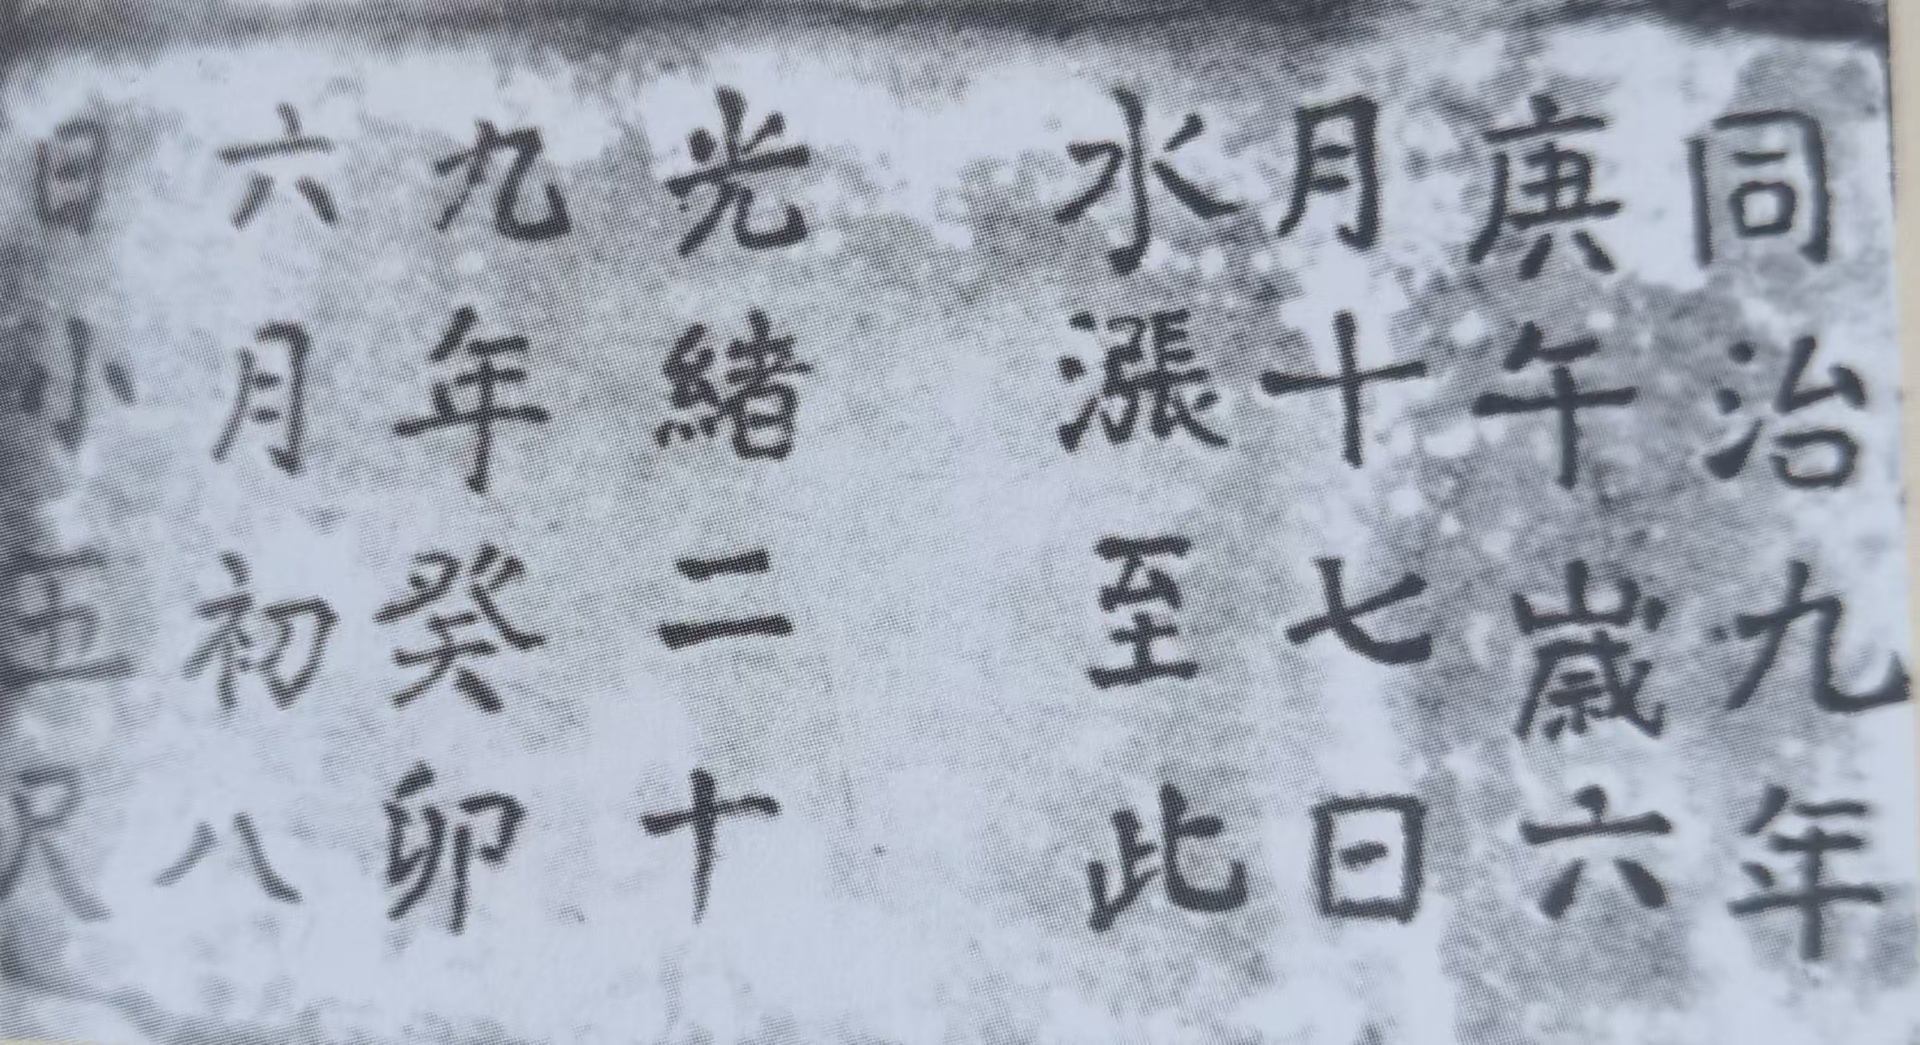 同治九年
庚午歲六
月十七日
水漲至此
光緒二十
九年癸卯
六月初八
日小五尺